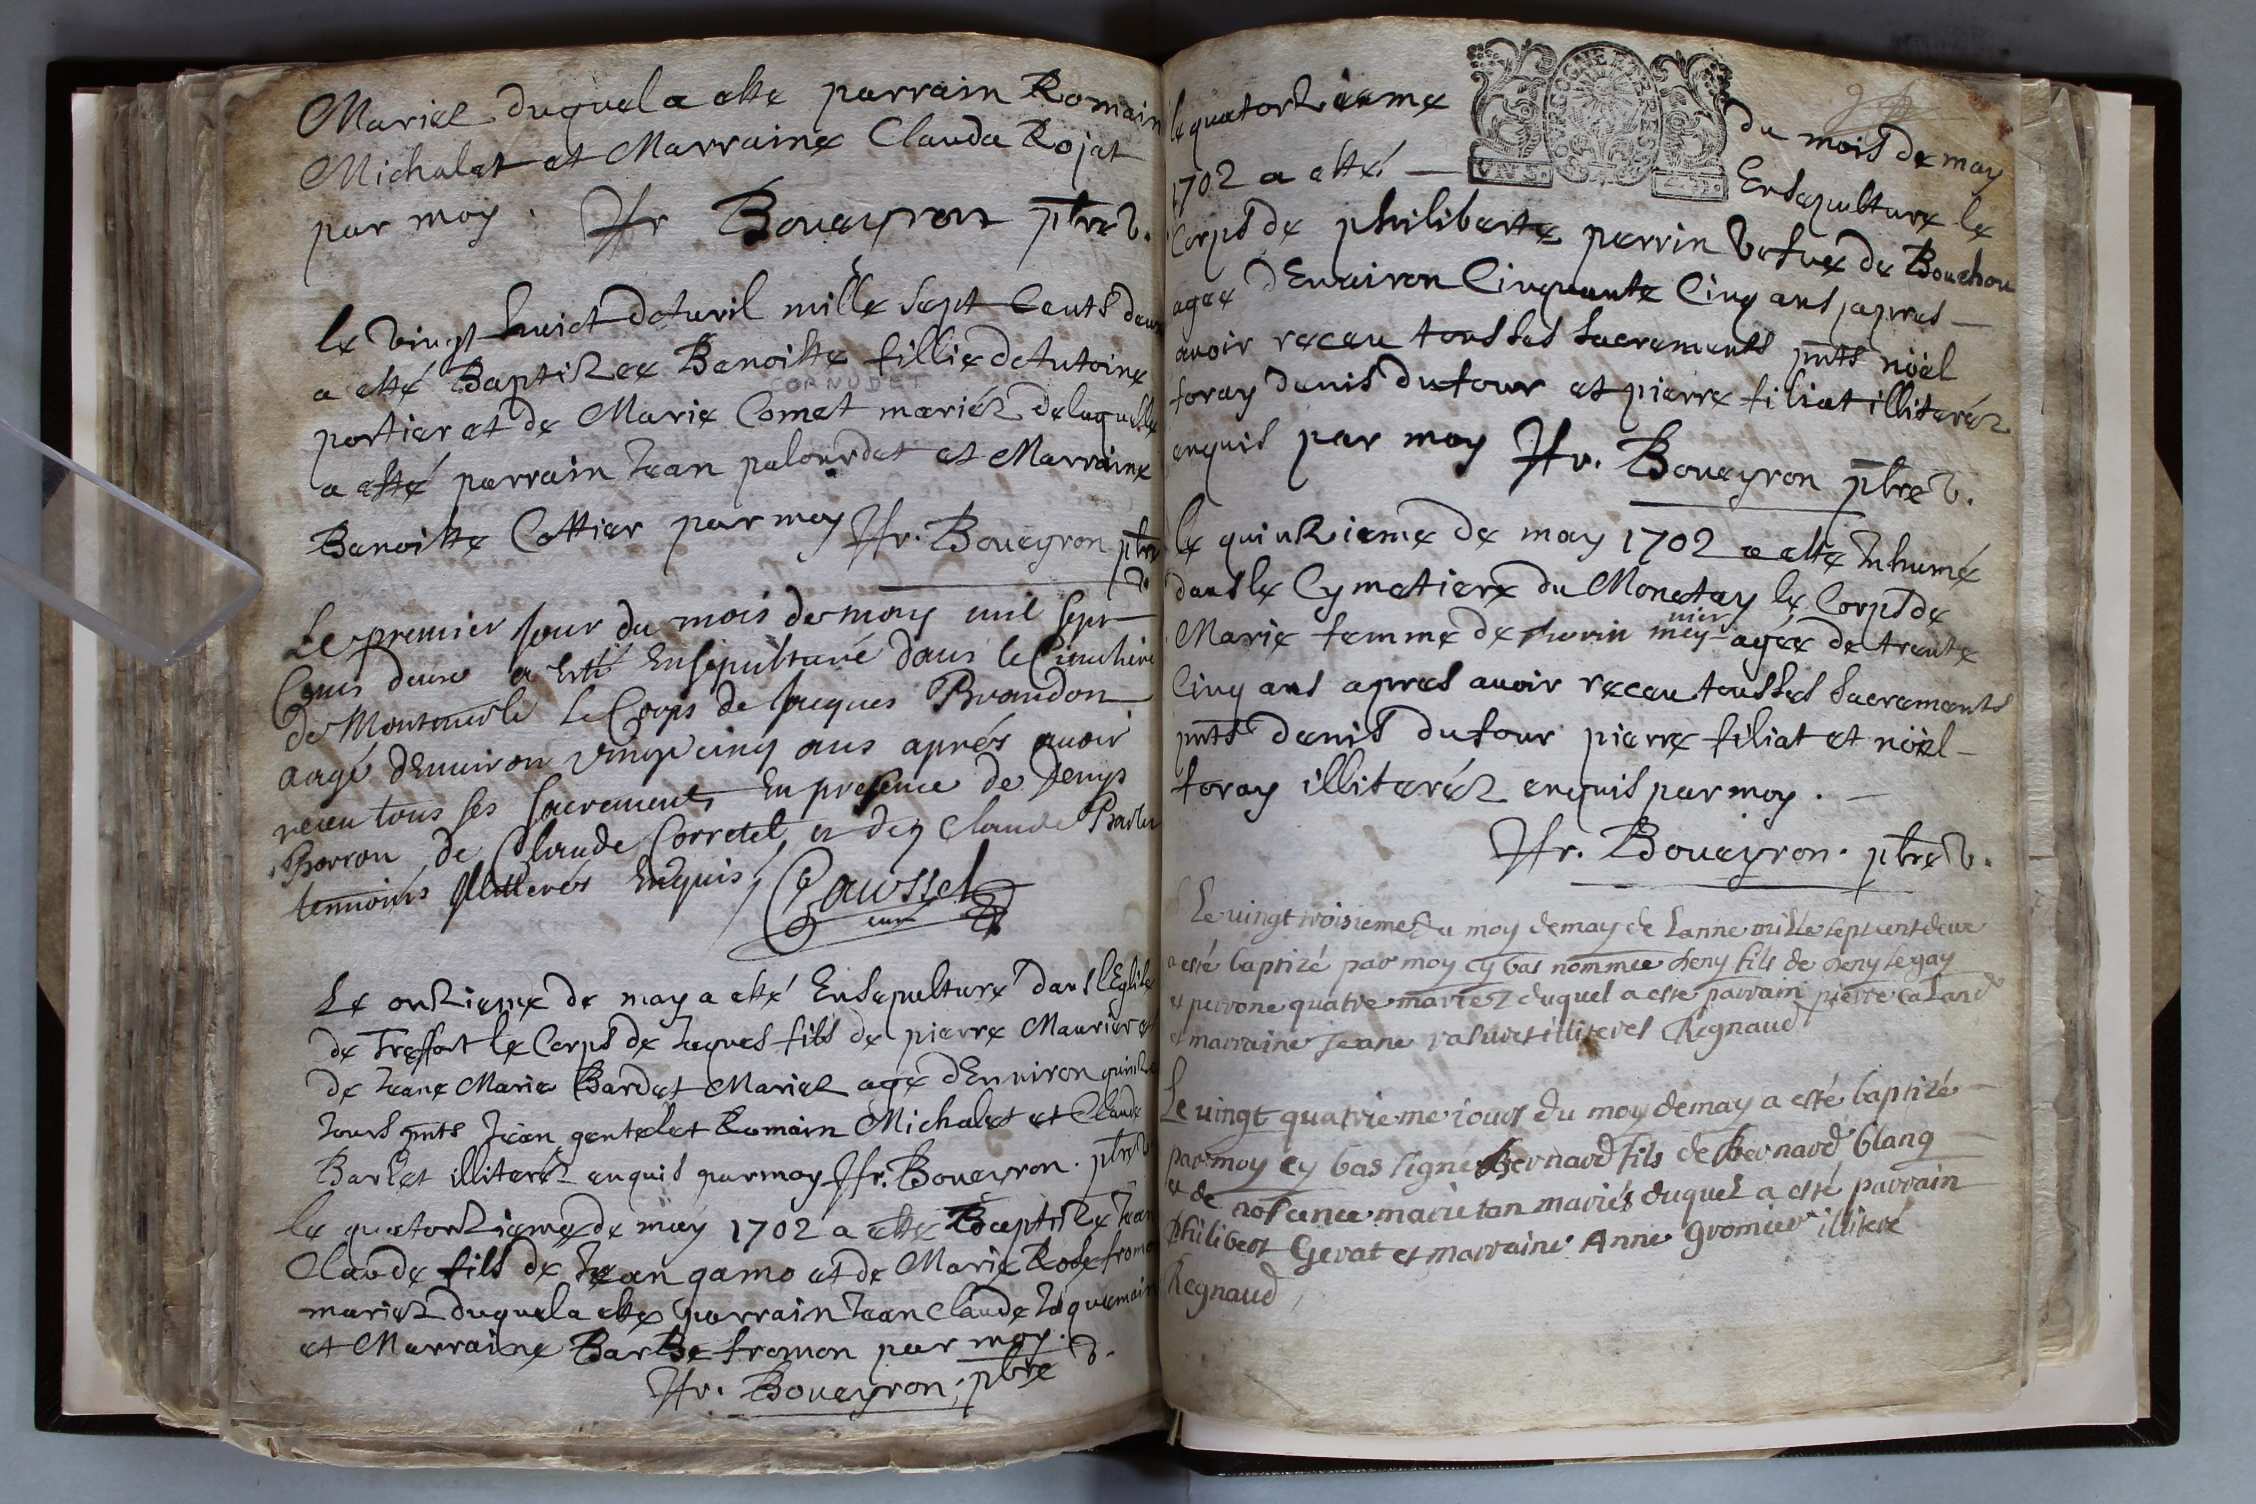 Mariez duquel a este parrain Romain
Michalet et Marraine Clauda Rojat
par moy. Fr Boueyron ptre v.
le vingt huict d'avril mille sept cents deux
a esté Baptizee Benoiste fillie d'Antoine
CORNUDET
portier et de Marie Comet mariéz de laquelle
a esté parrain Jean palourdet et Marraine
Benoiste Cottier par moy Fr. Boueyron ptre
v.
Le premier jour du mois de may mil sept
Cens deux a esté Ensepulturé dans le Cimetiere
de Montmerle Le Corps de Jaques Brandon
aagé d'Environ vingt cinq ans aprés avoir
receu tous ses sacrements En presence de Denys
Borron de Claude Corretel et de Claude
temoins Illiterés Enquis Caussel
curé
Le onzieme de may a esté Ensepulturé dans l'Eglise
de Treffort le Corps de Jaques fils de pierre Maurier et
de Jeane Marie Bardet Mariez agé d'Environ quinze
Jours pnts Jean gentelet Romain Michalet et Claude
Barlet illiteréz enquis par moy Fr. Boueyron. ptre v.
le quatorzieme de may 1702 a este Baptize Jean
Claude fils de Jean gamo et de Marie Rose fromon
mariez duquel a este parrain Jean Claude Jaquemain
et Marraine Barbe fromon par moy.
Fr. Boueyron. ptre v.
le quatorzieme du mois de may
1702 a esté Ensepulture le
Corps de philiberte perrin vefve de Bouchou
agee d'Environ Cinquante Cinq ans apres
avoir receu tous ses sacrements pnts nöel
foray denis dufour et pierre filiat illiteréz
enquis par moy Fr. Boueyron ptre v.
le quinzieme de may 1702 a este Inhumé
dans le Cymetiere du Monetay le Corps de
Marie femme de agée de trente
Cinq ans apres avoir receu tous ses sacrements
pnts denis dufour pierre filiat et nöel
foray illiteréz enquis par moy.
Fr. Boueyron. ptre v.
Le vingt troisieme du moy de may de Lanne mille sept cent deux
a esté baptizé par moy cy bas nommee deny fils de deny legay
et perrone quatre mariez duquel a este parrain pierre
et marraine Jeanne illiteres Regnaud
Le vingt quatrieme iour du moy de may a esté baptizé
par moy cy bas signé Bernard fils de Bernard blanq
et de marieton mariés duquel a esté parrain
philibert Gerat et marraine Anne gromier illiteré
Regnaud